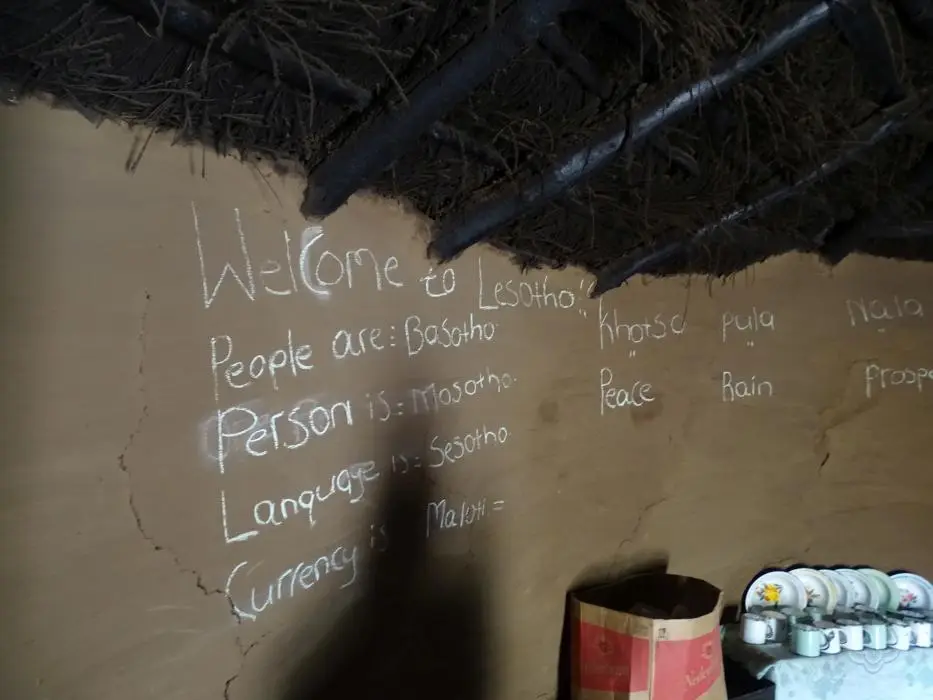 Welcome to Lesotho!!
People are: Basotho.
Person is: Mosotho.
Language is: Sesotho.
Currency is Maluti =
Khotso Pula Nala
Peace Rain Prospe